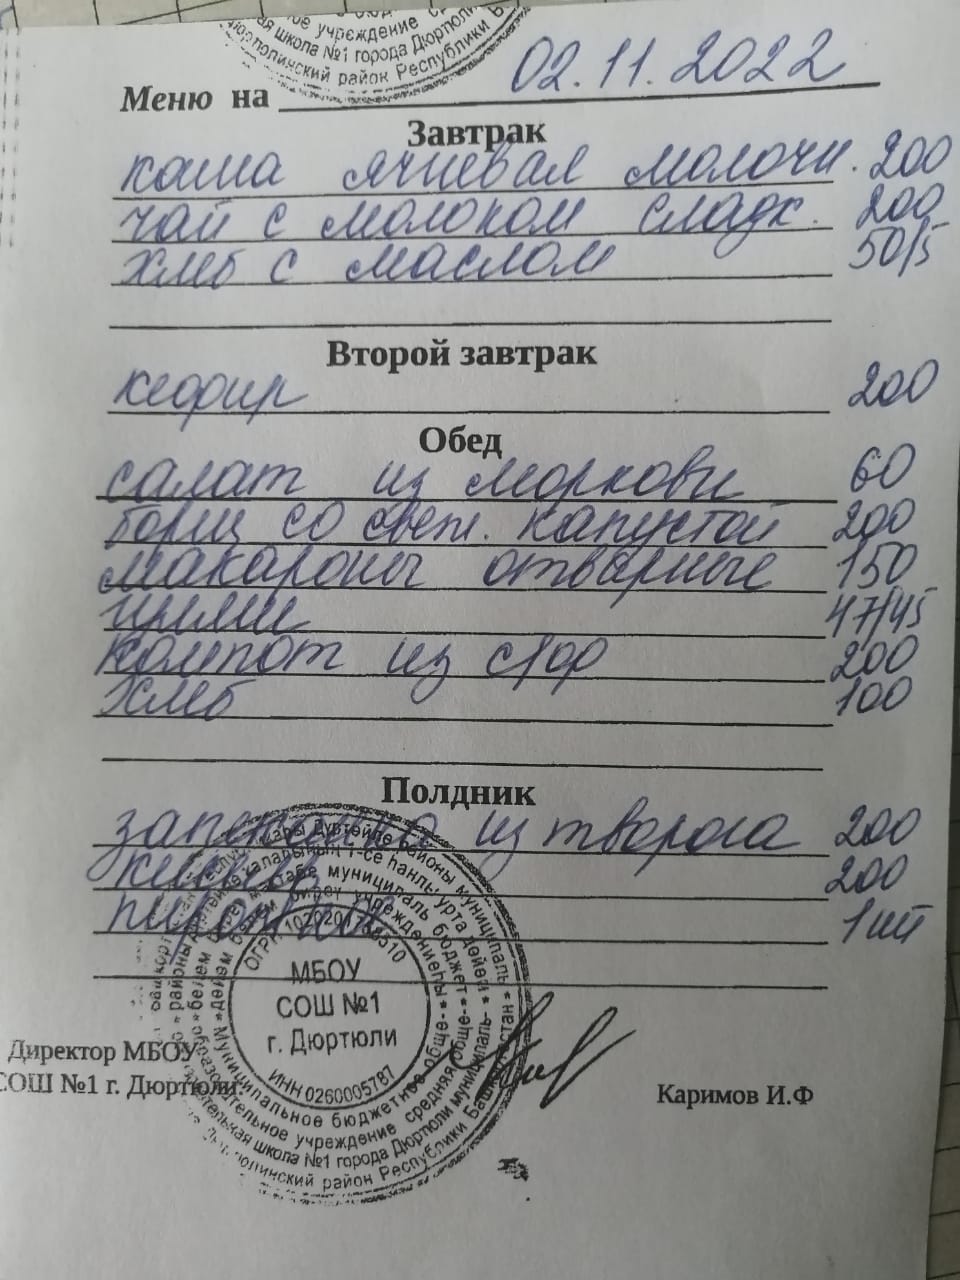 учреждение
школа №1 города Дюртюли
район Республики
Меню на 02.11.2022
Завтрак
каша ячневая молочн. 200
чай с молоком сладк. 200
хлеб с маслом 50/5
Второй завтрак
кефир 200
Обед
салат из моркови 60
борщ со свеж. капустой 200
макароны отварные 150
47/45
компот из с/фр 200
хлеб 100
Полдник
запеканка из творога 200
кисель 200
1 шт
МБОУ
СОШ №1
г. Дюртюли
ИНН 0260005787
Муниципальное бюджетное обще-
образовательное учреждение средняя обще-
школа №1 города Дюртюли муниципаль-
район Республики Башкортостан
Директор МБОУ
СОШ №1 г. Дюртюли:
Каримов И.Ф